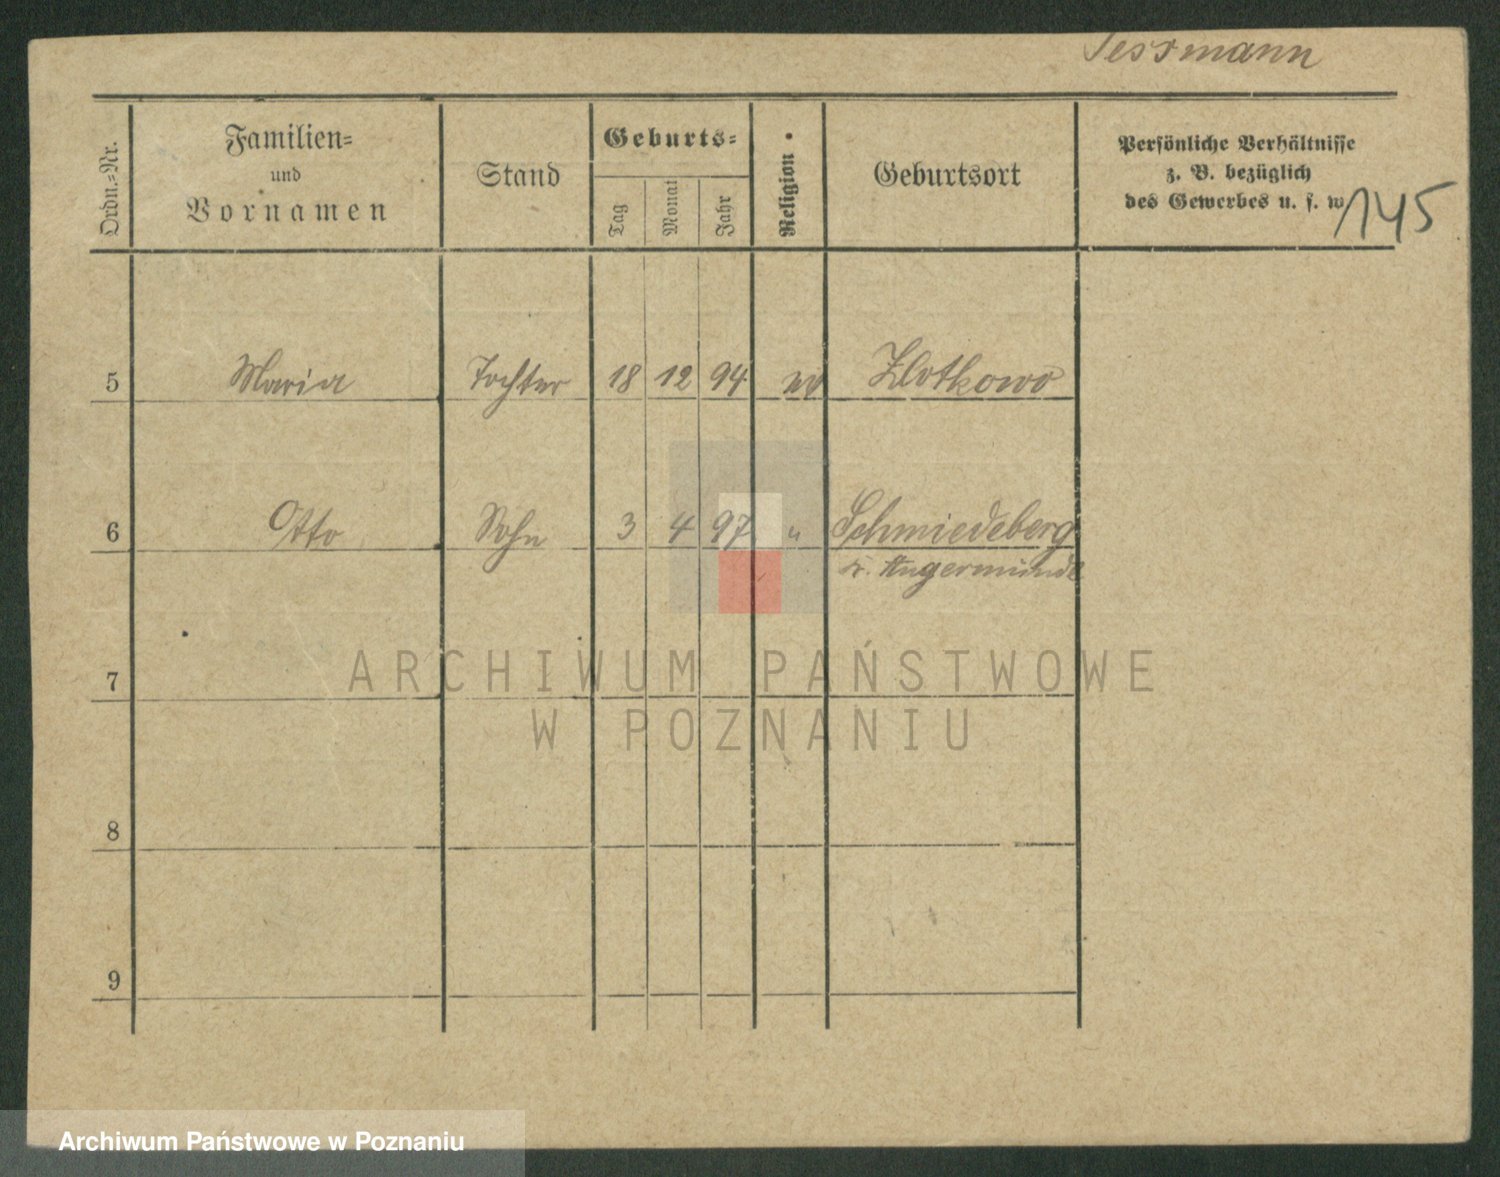 Tessmann
Ordn.-Nr.
Familien-
und
Vornamen
Stand
Geburts-
Tag
Monat
Jahr
Religion
Geburtsort
Persönliche Verhältnisse
z. B. bezüglich
des Gewerbes u. s. w.
145
5 Maria Tochter 18 12 94 ev Zlotkowo
6 Otto Sohn 3 4 97 " Schmiedeberg
Kr. Angermünde
7
8
9
ARCHIWUM PAŃSTWOWE
W POZNANIU
Archiwum Państwowe w Poznaniu